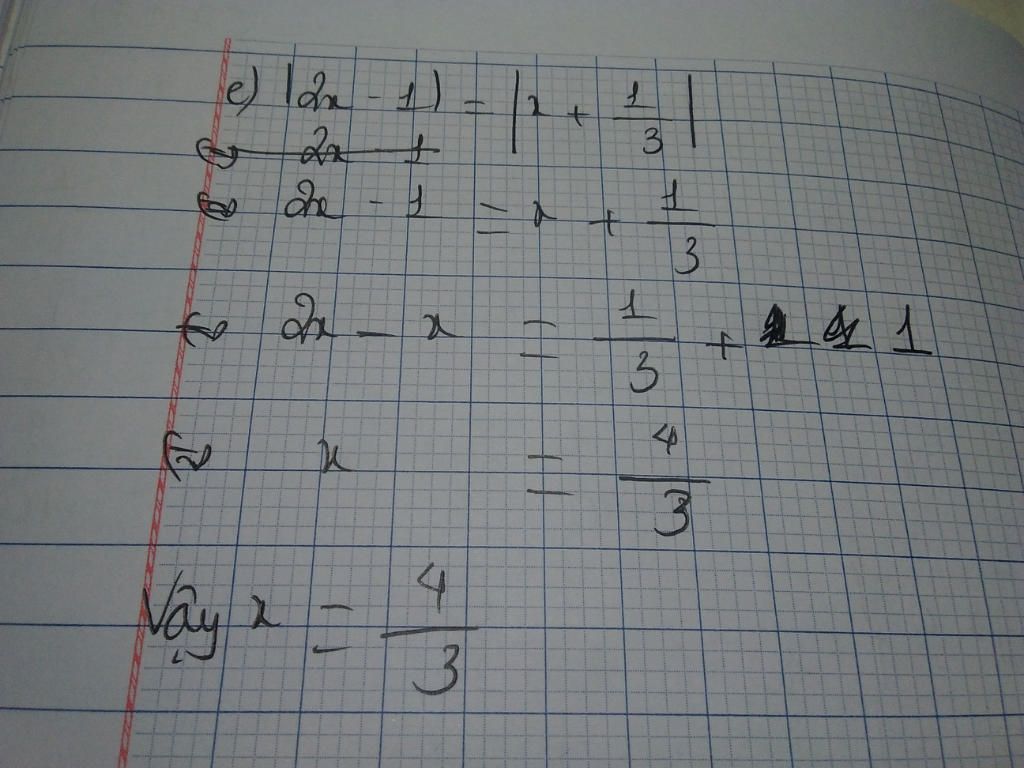 e) |2x - 1| = |x + 1/3|
⇔ 2x - 1 = x + 1/3
⇔ 2x - x = 1/3 + 1
⇔ x = 4/3
Vậy x = 4/3